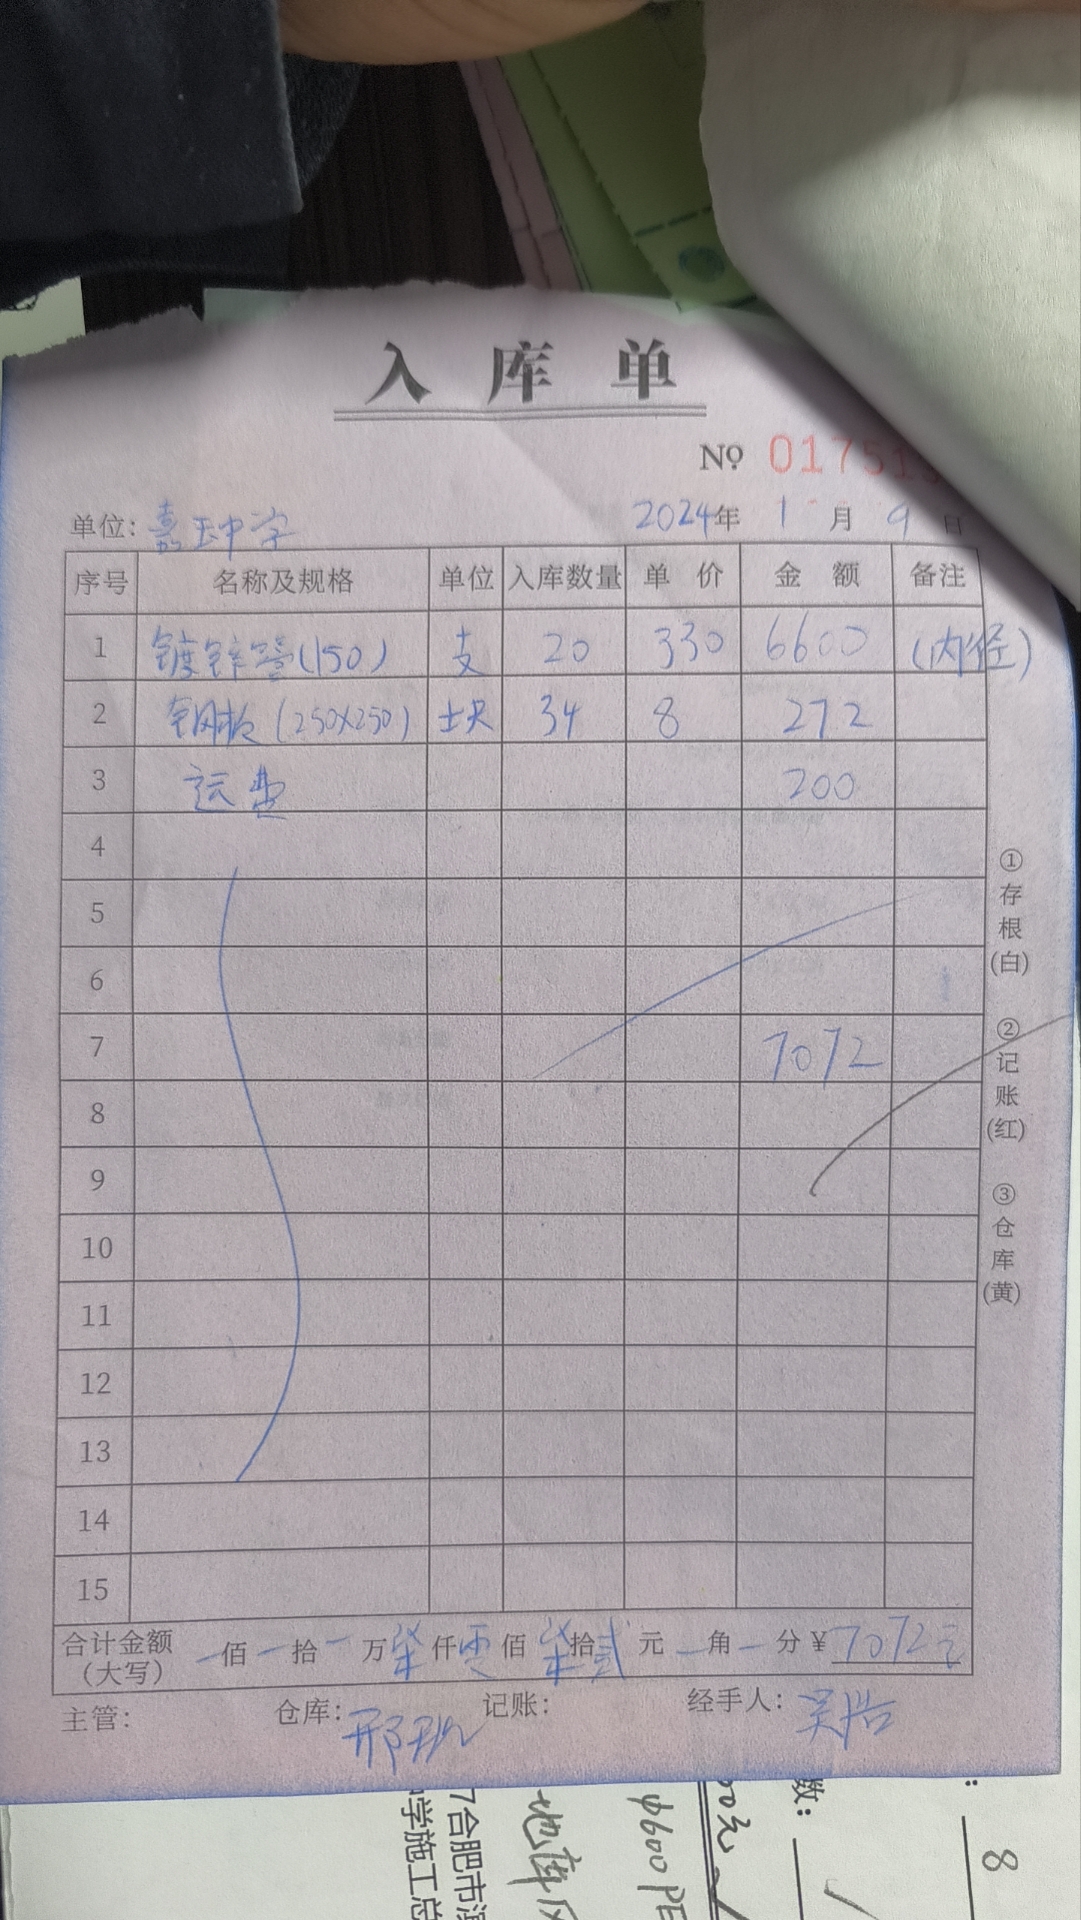 入库单
№ 01751
单位: 嘉玉中学 2024年 1月 9日
序号 名称及规格 单位 入库数量 单价 金额 备注
1 镀锌管(150) 支 20 330 6600 (内径)
2 钢板(250X250) 块 34 8 272
3 运费 200
4
5
6
7 7072
8
9
10
11
12
13
14
15
合计金额(大写) 一佰一拾一万柒仟零佰柒拾贰元一角一分¥7072元
主管: 仓库: 邢 记账: 经手人: 吴浩
①存根(白) ②记账(红) ③仓库(黄)
7合肥市
中学施工总
地库
ф600 PE
00元
数:
8